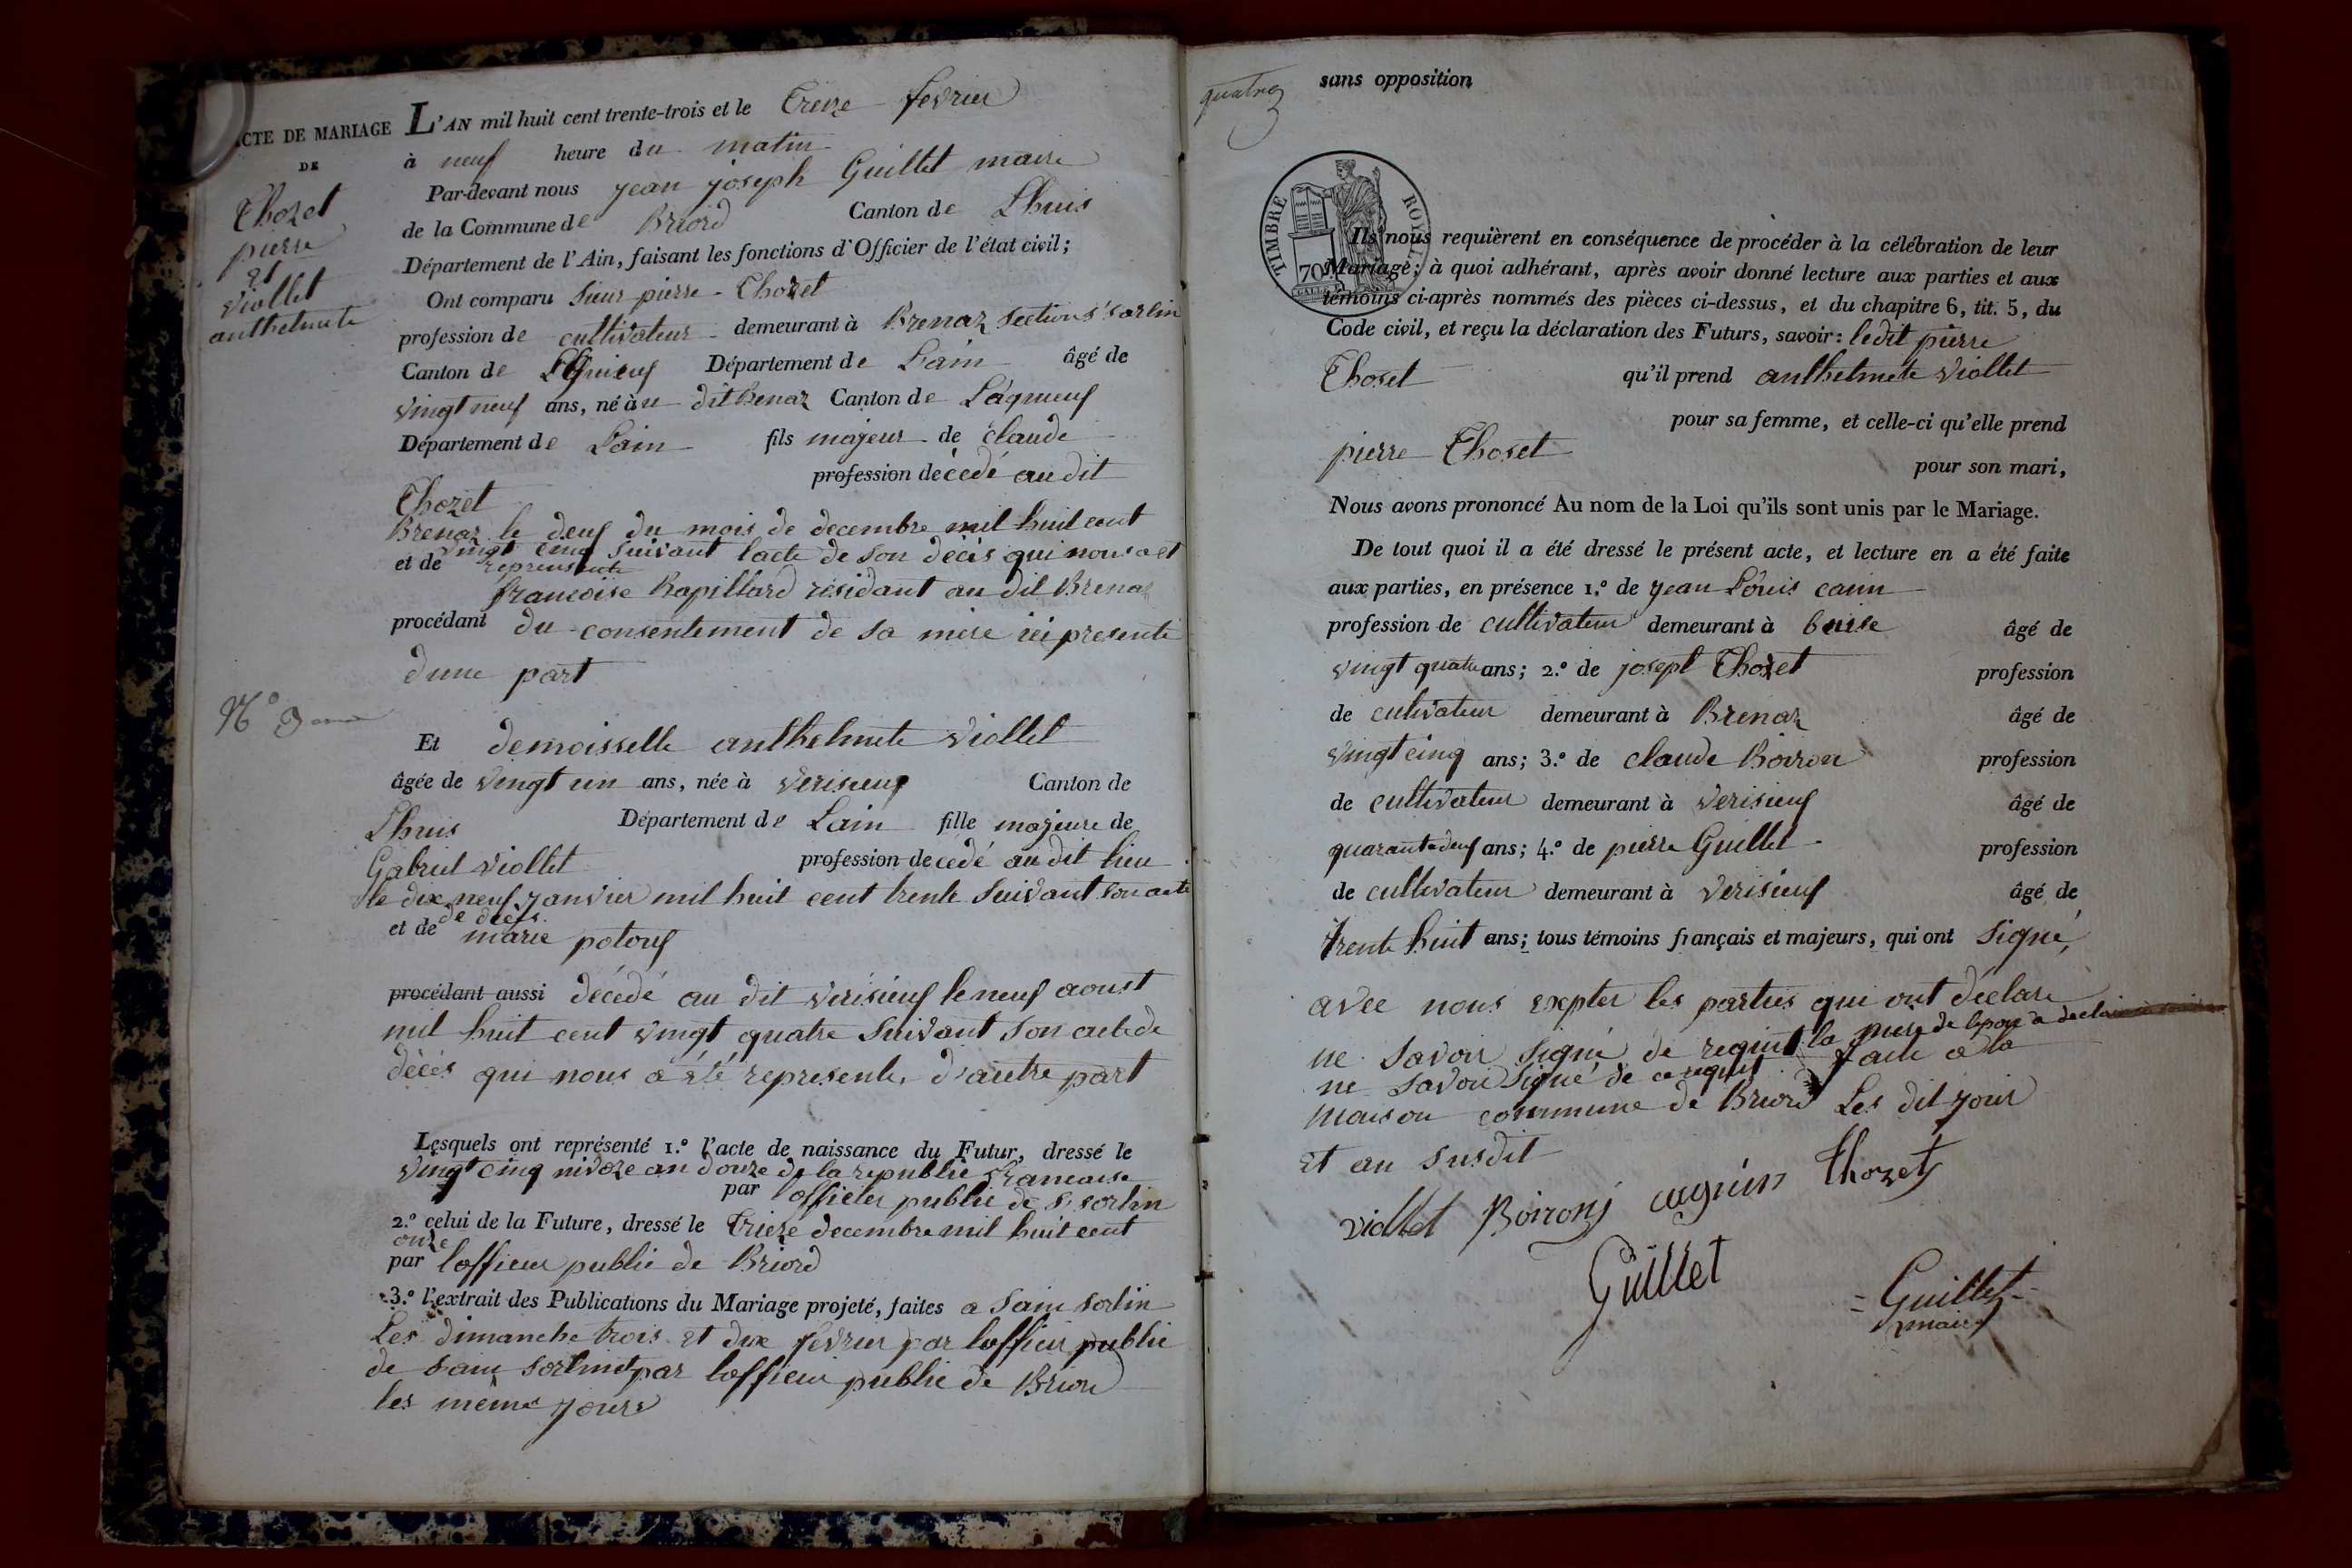 ACTE DE MARIAGE
DE
Thozet
pierre
et
Viollet
anthelmete
N.o 3
L'AN mil huit cent trente-trois et le Treize fevrier
à neuf heure du matin
Par-devant nous jean joseph Guillet maire
de la Commune de Briord Canton de Lhuis
Département de l'Ain, faisant les fonctions d'Officier de l'état civil;
Ont comparu Sieur pierre Thozet
profession de cultivateur demeurant à Brenaz section St Sorlin
Canton de Département de Lain âgé de
vingt neuf ans, né à Canton de Lagnieuf
Département de Lain fils majeur de claude
Thozet profession décédé au dit
Brenaz le deuf du mois de decembre mil huit cent
vingt cinq suivant lacte de son décès qui nous a et
et de
francoise Rapillard residant au dit Brenaz
procédant du consentement de sa mere ici presente
dune part
Et demoisselle anthelmete Viollet
âgée de vingt un ans, née à Verisieuf Canton de
Lhuis Département de Lain fille majeure de
Gabriel Viollet profession decedé au dit lieu
le dix neuf janvier mil huit cent trente suivant son acte
de décès
et de marie potouf
procédant aussi décédé au dit Verisieuf le neuf aoust
mil huit cent vingt quatre suivant son acte de
décès qui nous a été represente, d'autre part
Lesquels ont représenté 1.º l'acte de naissance du Futur, dressé le
vingt cinq nivoze an douze de la republic francaise
par lofficier public de St sorlin
2.º celui de la Future, dressé le Trieze decembre mil huit cent
onze
par lofficeu public de Briord
3.º l'extrait des Publications du Mariage projeté, faites a Sain Sorlin
Les dimanche trois et dix fevrier par lofficu public
de Sain Sorlin et par lofficu public de Briord
les meme jours
quatre
sans opposition
TIMBRE ROYAL
70
Ils nous requièrent en conséquence de procéder à la célébration de leur
Mariage; à quoi adhérant, après avoir donné lecture aux parties et aux
témoins ci-après nommés des pièces ci-dessus, et du chapitre 6, tit. 5, du
Code civil, et reçu la déclaration des Futurs, savoir: ledit pierre
Thoset qu'il prend anthelmete Viollet
pour sa femme, et celle-ci qu'elle prend
pierre Thoset
pour son mari,
Nous avons prononcé Au nom de la Loi qu'ils sont unis par le Mariage.
De tout quoi il a été dressé le présent acte, et lecture en a été faite
aux parties, en présence 1.º de jean Louis
profession de cultivateur demeurant à âgé de
vingt quatre ans; 2.º de josept Thozet profession
de cultivateur demeurant à Brenaz âgé de
vingt cinq ans; 3.º de claude Boiron profession
de cultivateur demeurant à Verisieuf âgé de
quarante deuf ans; 4.º de pierre Guillet profession
de cultivateur demeurant à Verisieuf âgé de
trente huit ans; tous témoins français et majeurs, qui ont Signé,
avec nous expter les parties qui ont déclare
ne savoir signé de requit la mere de lepou a declaré
ne savoir signé de ce requit faite a la
maison commune de Briord Les dit jour
et an susdit
viollet Boironj cagnin thozet
Guillet
Guillet
maire